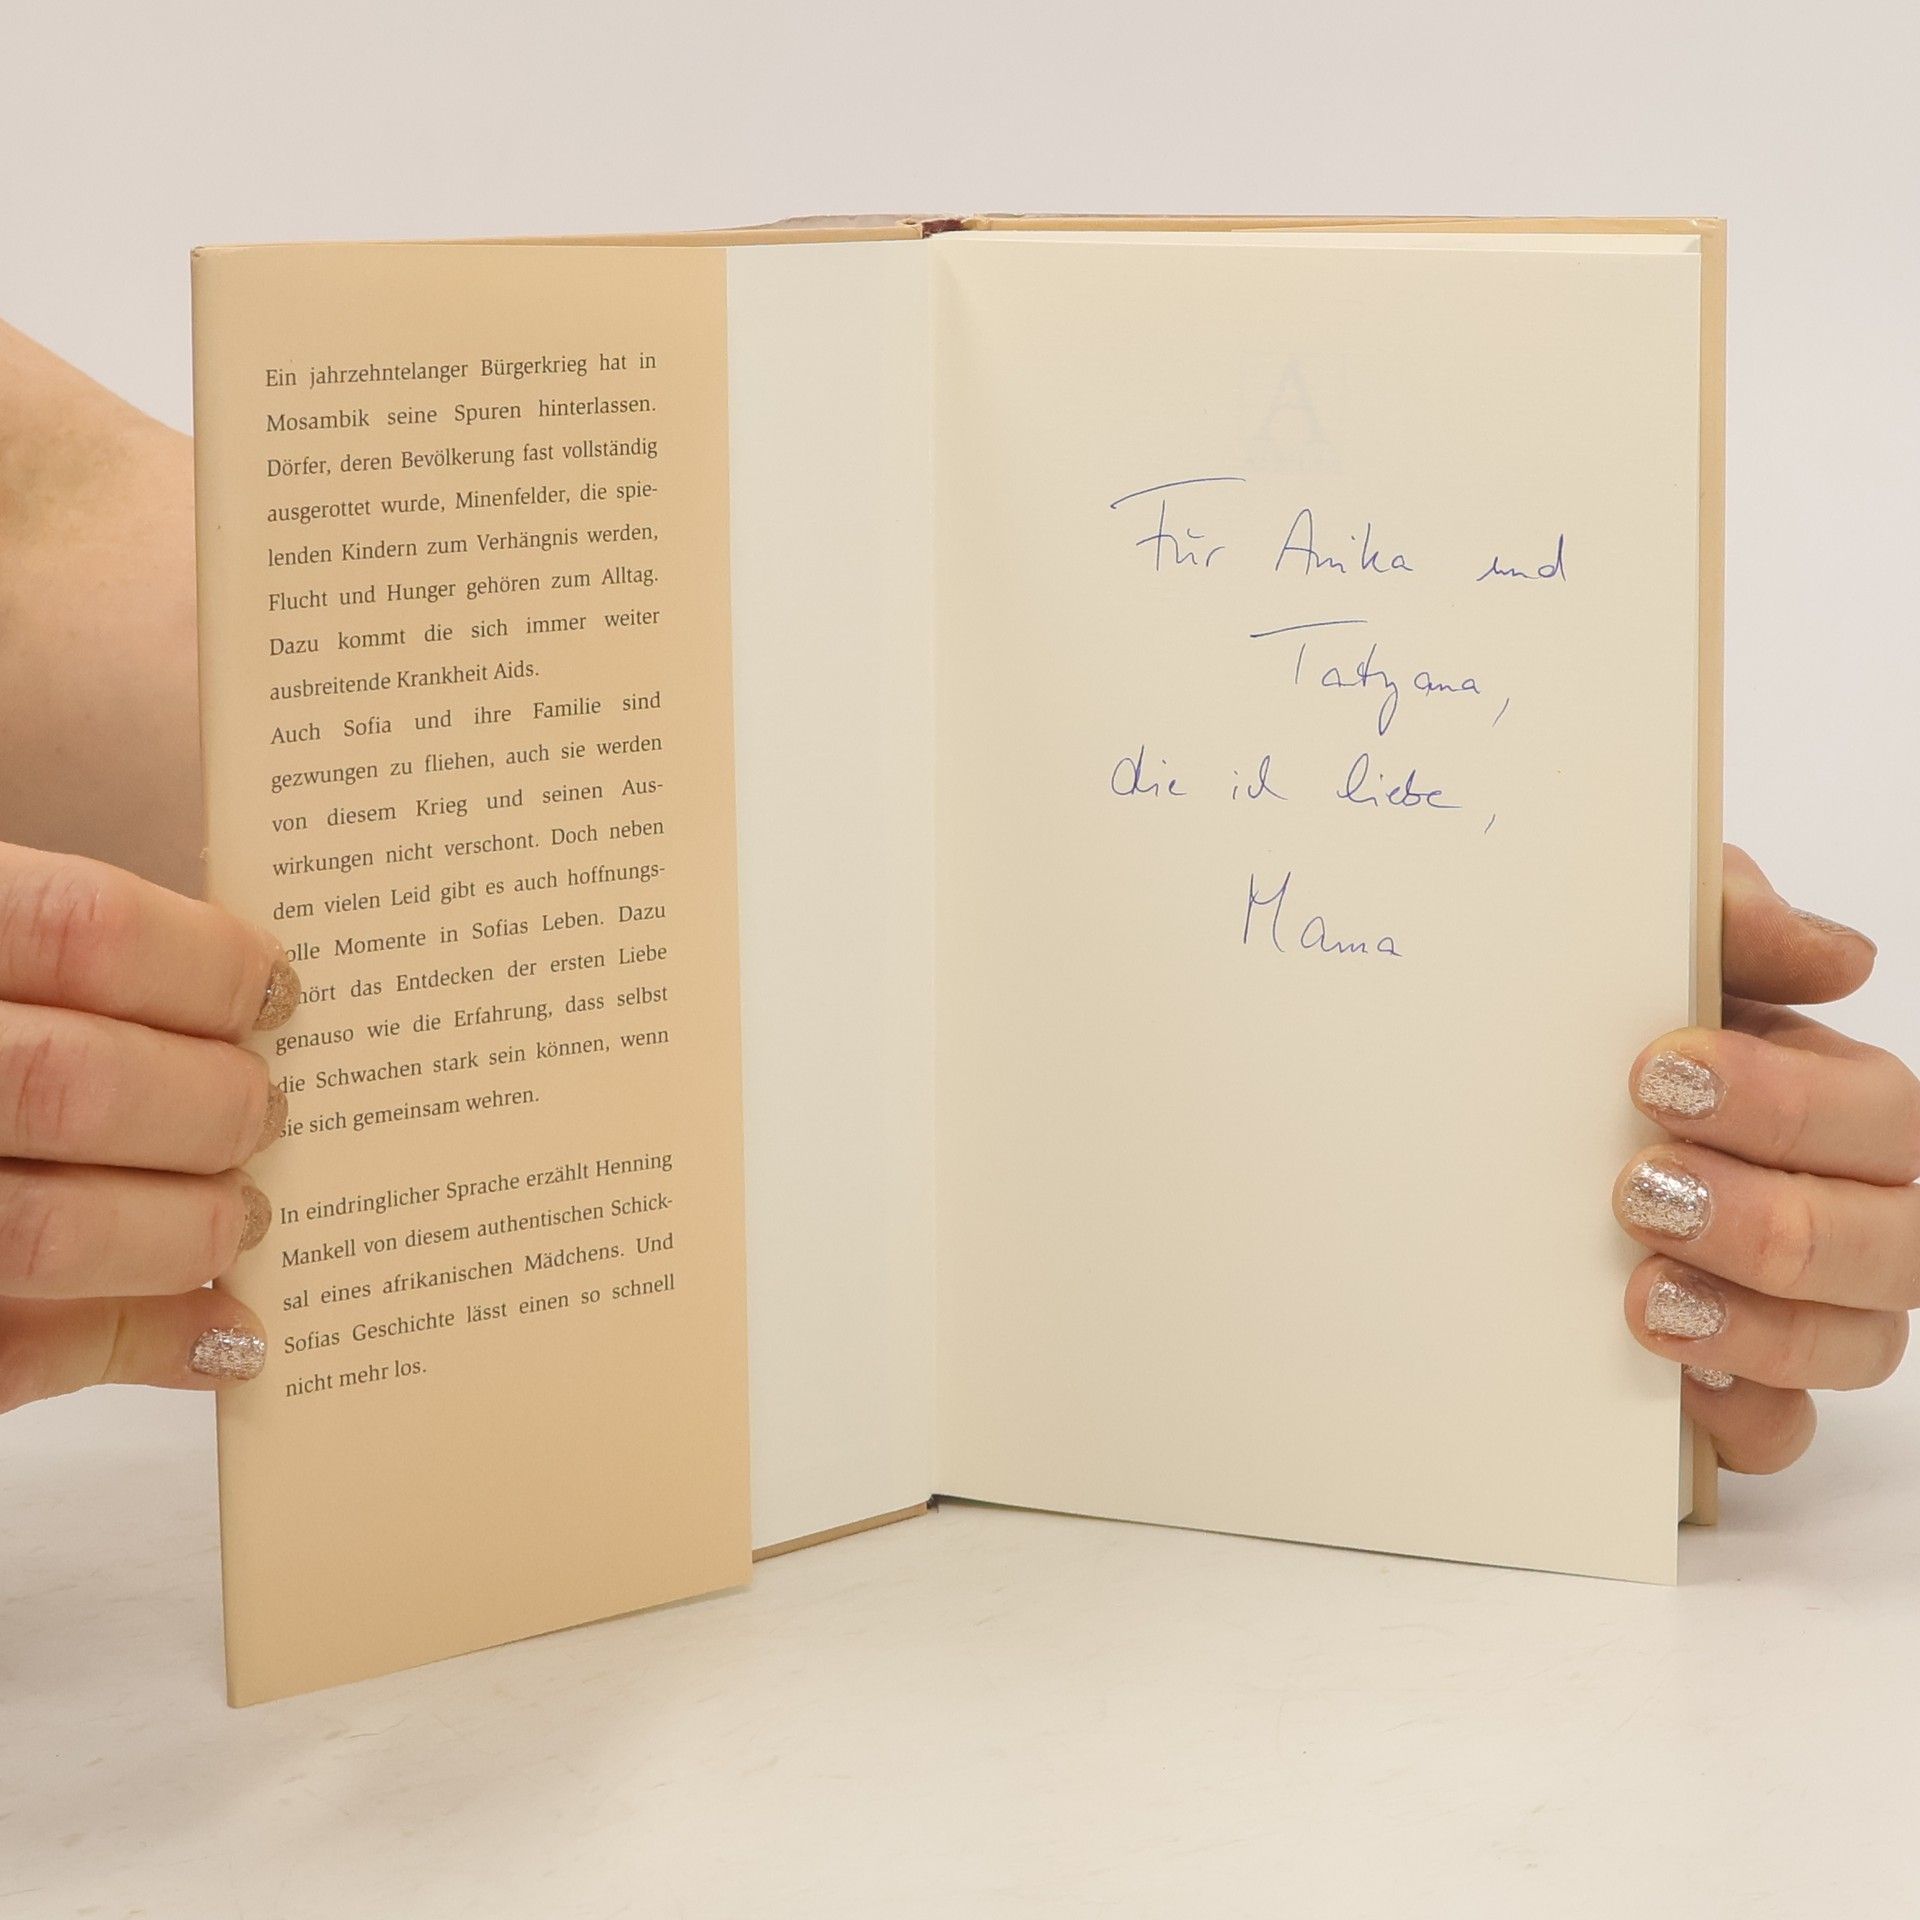 Ein jahrzehntelanger Bürgerkrieg hat in
Mosambik seine Spuren hinterlassen.
Dörfer, deren Bevölkerung fast vollständig
ausgerottet wurde, Minenfelder, die spie-
lenden Kindern zum Verhängnis werden,
Flucht und Hunger gehören zum Alltag.
Dazu kommt die sich immer weiter
ausbreitende Krankheit Aids.
Auch Sofia und ihre Familie sind
gezwungen zu fliehen, auch sie werden
von diesem Krieg und seinen Aus-
wirkungen nicht verschont. Doch neben
dem vielen Leid gibt es auch hoffnungs-
olle Momente in Sofias Leben. Dazu
hört das Entdecken der ersten Liebe
genauso wie die Erfahrung, dass selbst
die Schwachen stark sein können, wenn
sie sich gemeinsam wehren.
In eindringlicher Sprache erzählt Henning
Mankell von diesem authentischen Schick-
sal eines afrikanischen Mädchens. Und
Sofias Geschichte lässt einen so schnell
nicht mehr los.
Für Anika und
Tatyana,
die ich liebe,
Mama